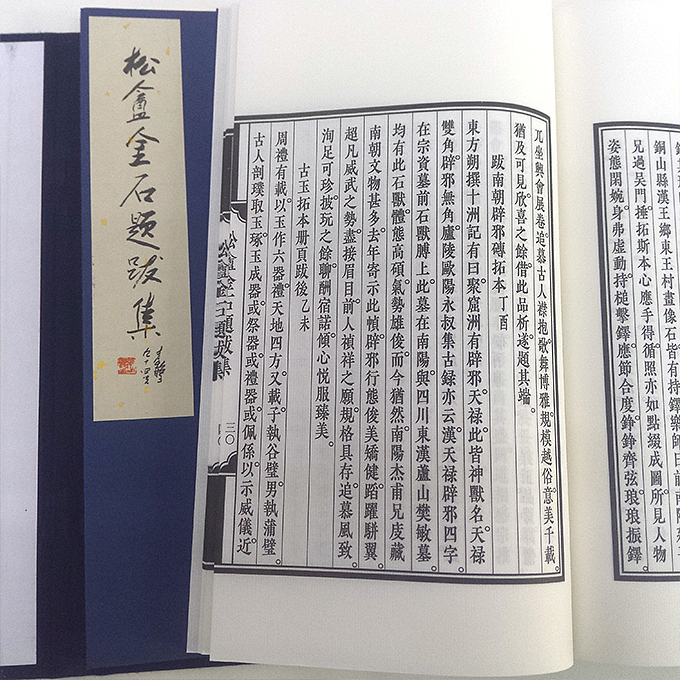 松盦金石題跋集
九十四叟
兀坐興會展卷追慕古人襟抱歌舞博雅規模越俗意美千載
猶及可見欣喜之餘借此品析遂題其端
跋南朝辟邪磚拓本丁酉
東方朔撰十洲記有曰聚窟洲有辟邪天祿此皆神獸名天祿
雙角辟邪無角廬陵歐陽永叔集古録亦云漢天禄辟邪四字
在宗資墓前石獸膊上此墓在南陽與四川東漢蘆山樊敏墓
均有此石獸體態高碩氣勢雄俊而今猶然南陽杰甫兄庋藏
南朝文物甚多去年寄示此幀辟邪行態俊美嬌健蹈躍駢翼
超凡威武之勢盡接眉目前人禎祥之願規格具存追慕風致
洵足可珍披玩之餘聊酬宿諾傾心悦服臻美
古玉拓本册頁跋後乙未
周禮有載以玉作六器禮天地四方又載子執谷璧男執蒲璧
古人剖璞取玉琢玉成器或祭器或禮器或佩係以示威儀近
松盦金石題跋集
三〇
銅山縣漢王鄉東王村畫像石皆有持鐸樂師日前南陽
兄過吴門捶拓斯本心應手得循照亦如點綴成圖所見人物
姿態閑婉身弗虚動持槌擊鐸應節合度錚錚齊弦琅琅振鐸